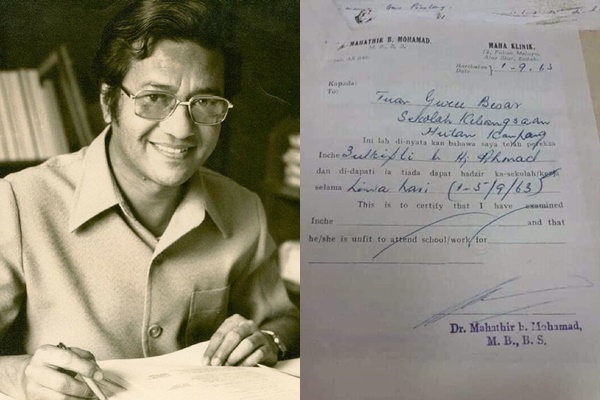 MAHATHIR B. MOHAMAD.
MAHA KLINIK.
Alor Star, Kedah.
Haribulan
Date 1-9-63
Kapada:
To:
Tuan Guru Besar
Sekolah Kebangsaan
Hutan Kampang
Ini lah di-nyata kan bahawa saya telah pereksa
Inche Zulkifli b Hj Ahmad
dan di-dapati ia tiada dapat hadzir ka-sekolah/kerja
selama Lima hari (1-5/9/63)
This is to certify that I have examined
Inche and that
he/she is unfit to attend school/work for
Dr. Mahathir b. Mohamad,
M. B., B. S.